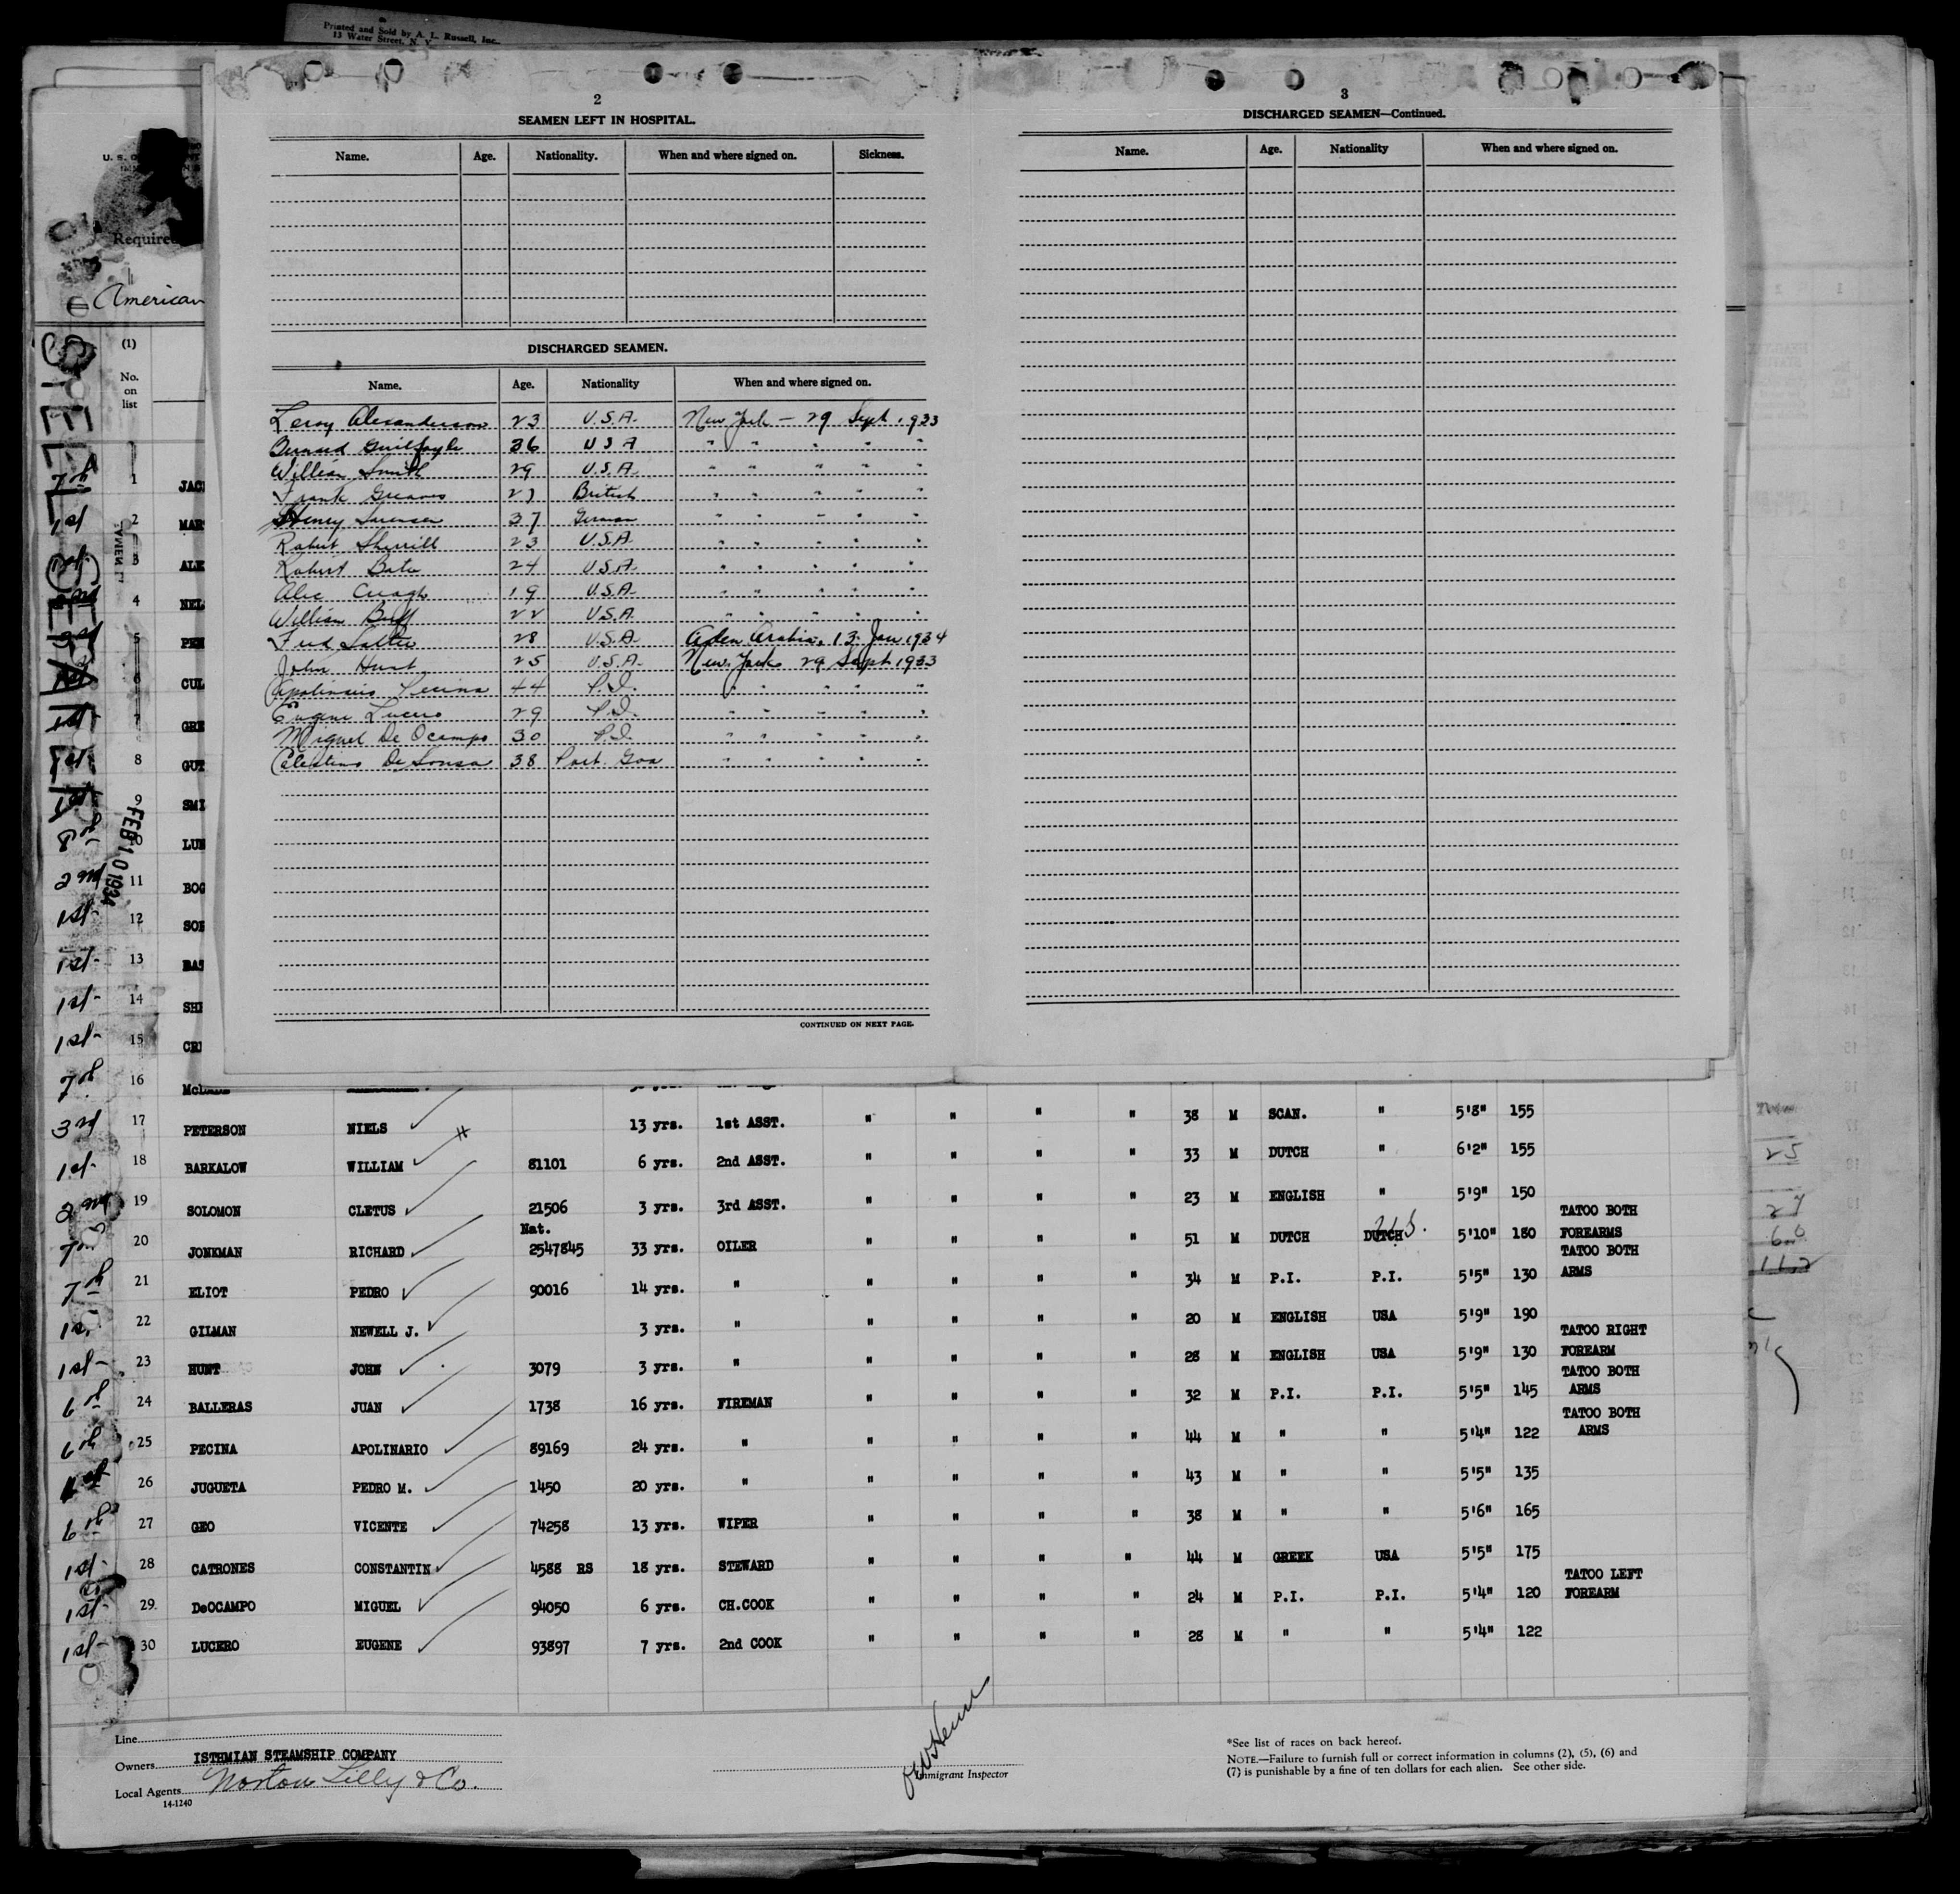 Printed and Sold by A. L. Russell, Inc.
13 Water Street, N. Y.
2
SEAMEN LEFT IN HOSPITAL.
Name. Age. Nationality. When and where signed on. Sickness.
DISCHARGED SEAMEN.
Name. Age. Nationality When and where signed on.
Leroy Alexanderson 23 U.S.A. New York — 29 Sept. 1933
Bernard Guilfoyle 36 U S A " " " " "
William Smith 29 U.S.A. " " " " "
Frank Greaves British " " " " "
Henry Sorensen 37 German " " " " "
Robert Sherrill 23 U.S.A. " " " " "
Robert 24 U.S.A. " " " " "
Alec 19 U.S.A. " " " " "
William 22 U.S.A. " " " " "
Fred 28 U.S.A. Aden Arabia, 13 Jan 1934
John Hunt 25 U.S.A. New York 29 Sept 1933
Apolinario Pecina 44 P.I. " " " " "
Eugene Lucero 29 P.I. " " " " "
Miguel De Ocampo 30 P.I. " " " " "
Celestino De Sousa 38 Port. Goa " " " " "
CONTINUED ON NEXT PAGE.
3
DISCHARGED SEAMEN—Continued.
Name. Age. Nationality When and where signed on.
U. S.
Required
American
STEEL
(1)
No.
on
list
FEB 10 1934
7th 1 JAC
1st 2 MAR
3 ALE
4 NEL
5 PEN
6 CUL
1st 7 GRE
1st 8 GUT
1st 9 SMI
LUN
2nd 11 BOG
1st 12 SOR
1st 13 BAT
1st 14 SHE
1st 15 CRE
7th 16
3rd 17 PETERSON NIELS 13 yrs. 1st ASST. " " " " 38 M SCAN. " 5'8" 155
1st 18 BARKALOW WILLIAM 81101 6 yrs. 2nd ASST. " " " " 33 M DUTCH " 6'2" 155
2nd 19 SOLOMON CLETUS 21506 3 yrs. 3rd ASST. " " " " 23 M ENGLISH " 5'9" 150
7th 20 JONKMAN RICHARD Nat. 2547845 33 yrs. OILER " " " " 51 M DUTCH DUTCH U.S. 5'10" 180 TATOO BOTH FOREARMS
7th 21 ELIOT PEDRO 90016 14 yrs. " " " " " 34 M P.I. P.I. 5'5" 130 TATOO BOTH ARMS
1st 22 GILMAN NEWELL J. 3 yrs. " " " " " 20 M ENGLISH USA 5'9" 190
1st 23 HUNT JOHN 3079 3 yrs. " " " " " 28 M ENGLISH USA 5'9" 130 TATOO RIGHT FOREARM
6th 24 BALLERAS JUAN 1738 16 yrs. FIREMAN " " " " 32 M P.I. P.I. 5'5" 145 TATOO BOTH ARMS
6th 25 PECINA APOLINARIO 89169 24 yrs. " " " " " 44 M " " 5'4" 122 TATOO BOTH ARMS
26 JUGUETA PEDRO M. 1450 20 yrs. " " " " " 43 M " " 5'5" 135
6th 27 GEO VICENTE 74258 13 yrs. WIPER " " " " 38 M " " 5'6" 165
1st 28 CATRONES CONSTANTIN 4588 RS 18 yrs. STEWARD " " " " 44 M GREEK USA 5'5" 175
1st 29. DeOCAMPO MIGUEL 94050 6 yrs. CH.COOK " " " " 24 M P.I. P.I. 5'4" 120 TATOO LEFT FOREARM
1st 30 LUCERO EUGENE 93897 7 yrs. 2nd COOK " " " " 28 M " " 5'4" 122
Line
Owners ISTHMIAN STEAMSHIP COMPANY
Local Agents Norton Lilly & Co.
14-1240
Immigrant Inspector
*See list of races on back hereof.
NOTE.—Failure to furnish full or correct information in columns (2), (5), (6) and
(7) is punishable by a fine of ten dollars for each alien. See other side.